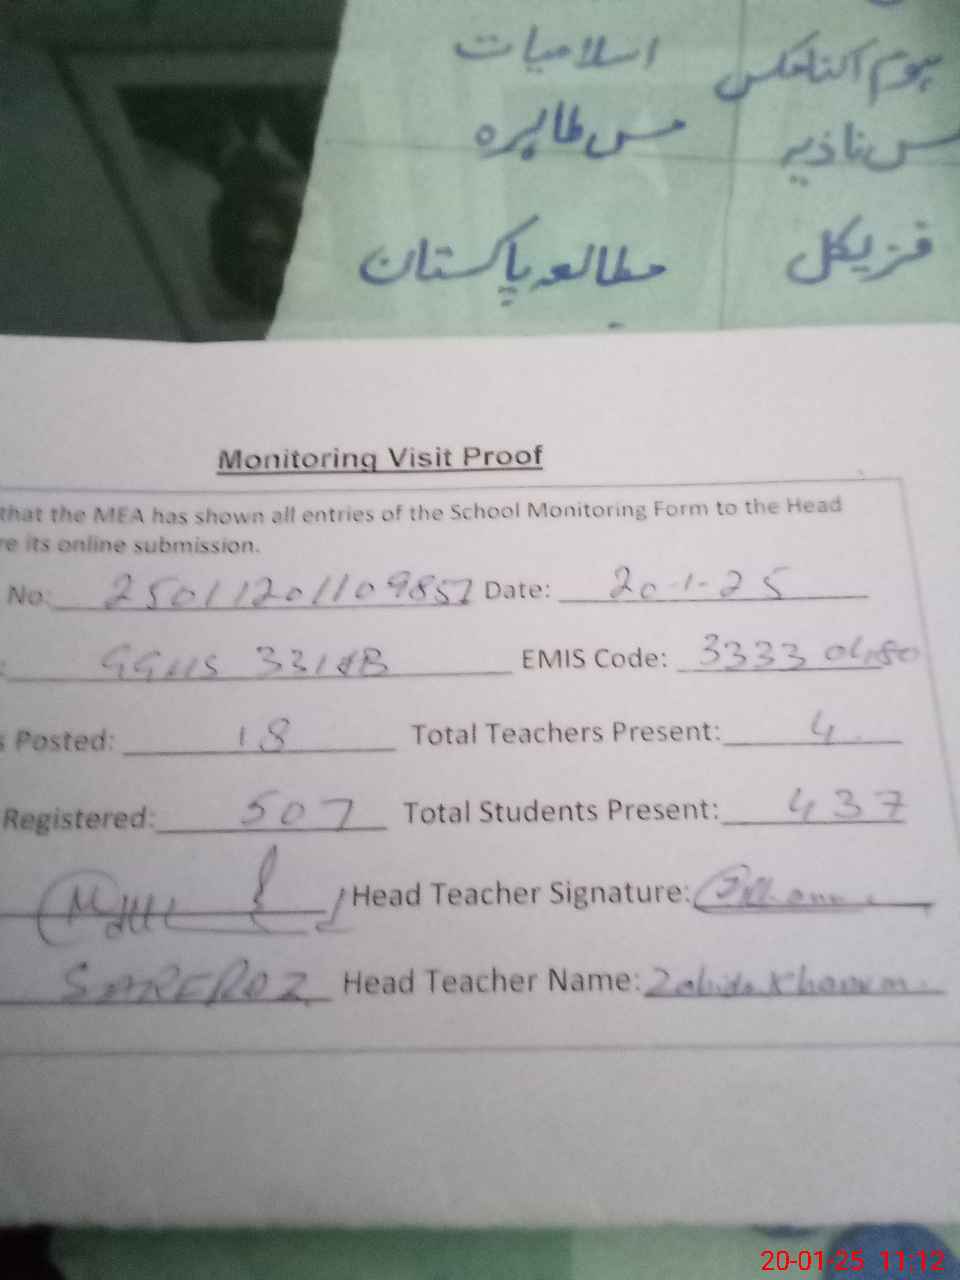 اسلامیات ہوم اکنامکس
مس طاہرہ مس نادیہ
مطالعہ پاکستان فزیکل
Monitoring Visit Proof
that the MEA has shown all entries of the School Monitoring Form to the Head
re its online submission.
No: 250112011098 Date: 20-1-25
: GGHS 331 EMIS Code: 3333
s Posted: 18 Total Teachers Present: 4
Registered: 507 Total Students Present: 437
Head Teacher Signature:
Head Teacher Name: Zahida Khanum
20-01-25 11:12